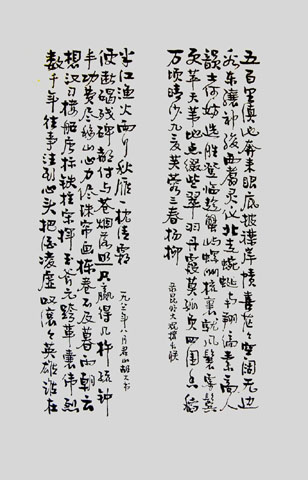 五百里滇池奔来眼底披襟岸帻喜茫茫空阔无边
看东骧神骏西翥灵仪北走蜿蜒南翔缟素高人
韵士何妨选胜登临趁蟹屿螺洲梳裹就风鬟雾鬓
更苹天苇地点缀些翠羽丹霞莫孤负四围香稻
万顷晴沙九夏芙蓉三春杨柳
录昆明大观楼长联
数千年往事注到心头把酒凌虚叹滚滚英雄谁在
想汉习楼船唐标铁柱宋挥玉斧元跨革囊伟烈
丰功费尽移山心力尽珠帘画栋卷不及暮雨朝云
便断碣残碑都付与苍烟落照只赢得几杵疏钟
半江渔火两行秋雁一枕清霜
年八月君山